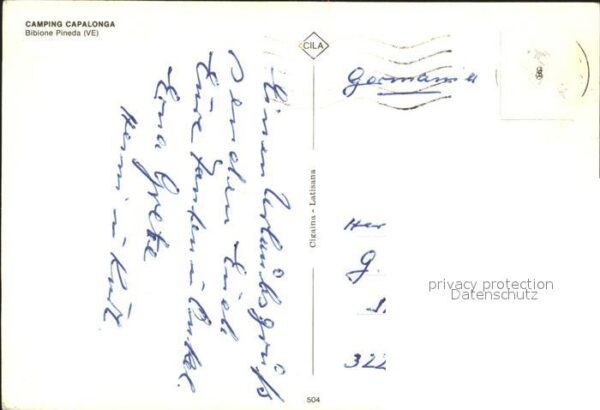 CAMPING CAPALONGA
Bibione Pineda (VE)
CILA
Germania
Einen Urlaubsgruß
senden Euch
Eure Tanten u. Onkel.
Erna Grete
Henni u. Kurt.
Cigaina - Latisana
Her
G.
322
privacy protection
Datenschutz
504